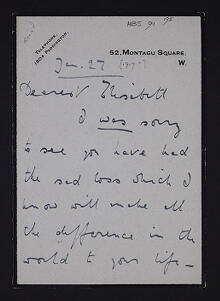 HBS 91
TELEPHONE,
1904 PADDINGTON.
52, MONTAGU SQUARE,
W.
Jan. 27
Dearest Elisabeth
I was sorry
to see you have had
the sad loss which I
know will make all
the difference in the
world to your life -